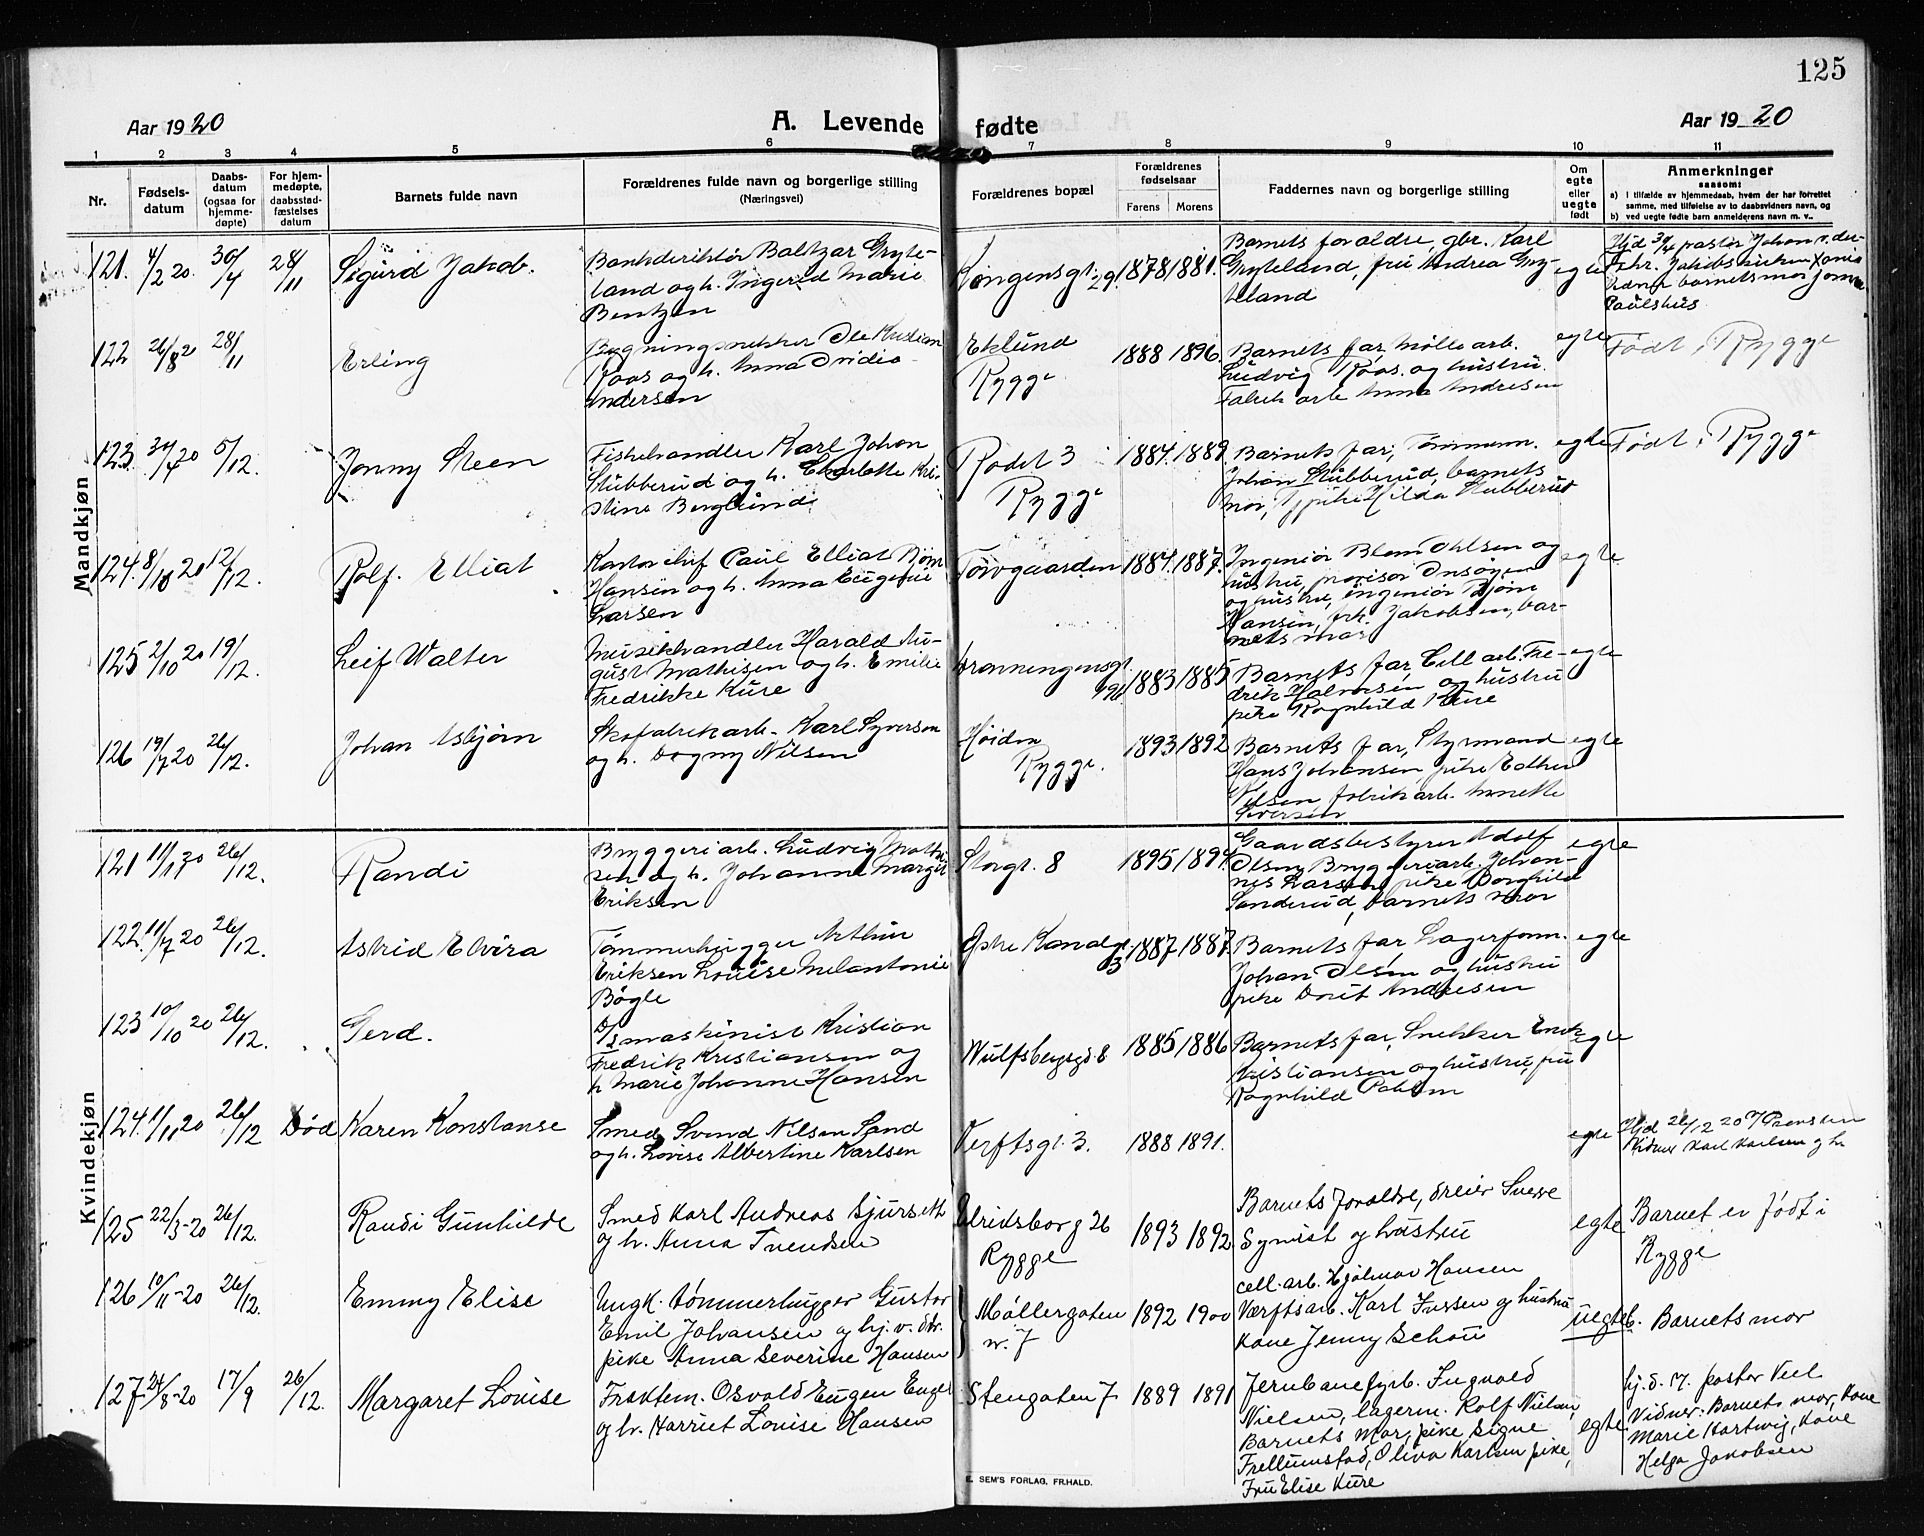 125
Aar 1920
A. Levende fødte
Aar 1920
1 2 3 4 5 6 7 8 9 10 11
Nr.
Fødsels-
datum
Daabs-
datum
(ogsaa for
hjemme-
døpte)
For hjem-
medøpte,
daabsstad-
fæstelses
datum
Barnets fulde navn
Forældrenes fulde navn og borgerlige stilling
(Næringsvei)
Forældrenes bopæl
Forældrenes
fødselsaar
Farens Morens
Faddernes navn og borgerlige stilling
Om
egte
eller
uegte
født
Anmerkninger
saasom:
a) i tilfælde av hjemmedaab, hvem der har forrettet
samme, med tilføielse av to daabsvidners navn, og
b) ved uegte fødte barn anmelderens navn m. v..
Mandkjøn
121. 4/2 20. 30/4 28/11
Sigurd Jakob.
Bankdirektør Baltzar Gryte-
land og h. Ingerid Marie
Bentzen
Kongensgt. 29.
1878 1881.
Barnets forældre, gbr. Karl
Gryteland, fru Andrea Gry-
teland
egte
Paulshus
122 26/8 20 28/11
Erling
Bygningssnekker Ole Kristian
Roos og h. Anna Ovidia
Andersen
Eklund
Rygge
1888 1896.
Barnets far, Møllearb.
Ludvig Roos. og hustru.
Fabrikarb. Anna Andresen
egte
Født i Rygge
123. 30/7 20 5/12.
Jonny Steen
Fiskehandler Karl Johan
Stubberud og h. Charlotte Kri-
stine Berglund
Rødst 3
Rygge
1884. 1889.
Barnets far, Tømmerm.
Johan Stubberud, barnets
mor, Hilda Stubberud
egte
Født i Rygge
124. 8/10 20 12/12.
Rolf. Elliat
Kontorchef Paul Elliat Bjørn
Hansen og h. Anna Eugenie
Larsen
Torvgaarden
1884. 1887.
Ingeniør Blom Ohlsen og
hustru, provisor Onsøyen
og hustru, ingeniør Bjørn
Hansen, frk. Jakobsen, bar-
nets mor
egte
125 2/10 20 19/12.
Leif Walter
Musikhandler Harald Au-
gust Mathisen og h. Emilie
Fredrikke Kure
Dronningensgt.
1883 1885
Barnets far, Cell.arb. Fre-
drik Halvorsen og hustru
pike Ragnhild Kure
egte
126 19/7 20 26/12.
Johan Asbjørn
Skofabrikarb. Karl Syversen
og h. Dagny Nilsen
Høiden
Rygge.
1893 1892
Barnets far, Styrmand
Hans Johansen, pike Esther
Nilsen, fabrikarb. Annette
Syversen
egte
Kvindekjøn
121 11/11 20 26/12.
Randi
Bryggeriarb. Ludvig Mathi-
sen og h. Johanne Margit
Eriksen
Storgt. 8
1895 1894.
Gaardsbestyrer Adolf
Olsen, Bryggeriarb. Johan-
nes Larsen, pike Borghild
Sanderud, barnets mor
egte
122. 11/7 20 26/12.
Astrid Elvira
Tømmerhugger Arthur
Eriksen Louise Melantonie
Bøgle
Østre Kanalgt.
3
1887 1887.
Barnets far, Lagerform.
Johan Olsen og hustru
pike Dorit Andresen
egte
123 10/10 20 26/12.
Gerd.
D/S maskinist Kristian
Fredrik Kristiansen og
h. Marie Johanne Hansen
Wulfsbergsgt. 8
1885 1886
Barnets far, Snekker
Kristiansen og hustru, fru
Ragnhild Paulsen
egte
124. 1/11 20 26/12 Død
Karen Konstanse
Smed Svend Nilsen Sand
og h. Lovise Albertine Karlsen
Verftsgt. 3.
1888 1891.
egte
Hjd 26/12 20
Vidner Karl Karlsen og h.
125 22/3-20 26/12.
Randi Gunhilde
Smed Karl Andreas Sjurseth
og h. Anna Svendsen
Ulriksborg 26
Rygge
1893 1892.
Barnets forældre, dreier Sverre
Syvrist og hustru
egte
Barnet er født i
Rygge
126 10/11-20 26/12.
Emmy Elise
Ungk. tømmerhugger Gustav
Emil Johansen og hj.v. dtr.
pike Anna Severine Hansen
Møllergaten
nr. 7
1892 1900
cell.arb. Hjalmar Hansen
Værftsarb. Karl Iversen og hustru
kone Jenny Schou
uegte
b. Barnets mor
127 24/8-20 17/9 26/12.
Margaret Lovise
Fraktem. Osvald Eugen Engel
og h. Harriet Lovise Hansen
Stengaten 7
1889 1891
Jernbanefyrb. Ingvald
Nielsen, lagerm. Rolf Nielsen,
Barnets mor, pike Signe
Frellumstad, Oliva Karlsen pike,
Fru Elise Kure
egte
hj.d. 17/9 pastor Veel
Vidner: Barnets mor, kone
Marie Hartwig, kone
Helga Jakobsen
E. SEM'S FORLAG, FR.HALD.